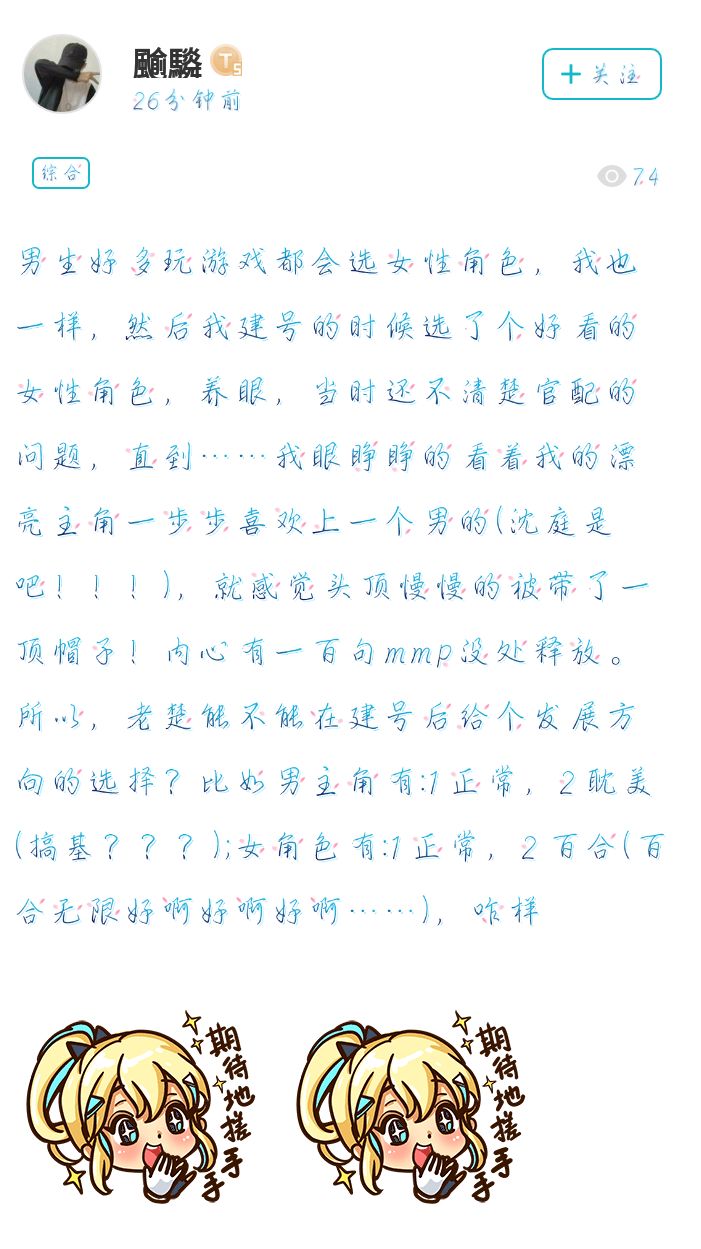 颙騥
Ts
26分钟前
+ 关注
综合
74
男生好多玩游戏都会选女性角色，我也
一样，然后我建号的时候选了个好看的
女性角色，养眼，当时还不清楚官配的
问题，直到……我眼睁睁的看着我的漂
亮主角一步步喜欢上一个男的(沈庭是
吧！！！)，就感觉头顶慢慢的被带了一
顶帽子！内心有一百句mmp没处释放。
所以，老楚能不能在建号后给个发展方
向的选择？比如男主角有:1正常，2耽美
(搞基？？？);女角色有:1正常，2百合(百
合无限好啊好啊好啊……)，咋样
期待地搓手手
期待地搓手手